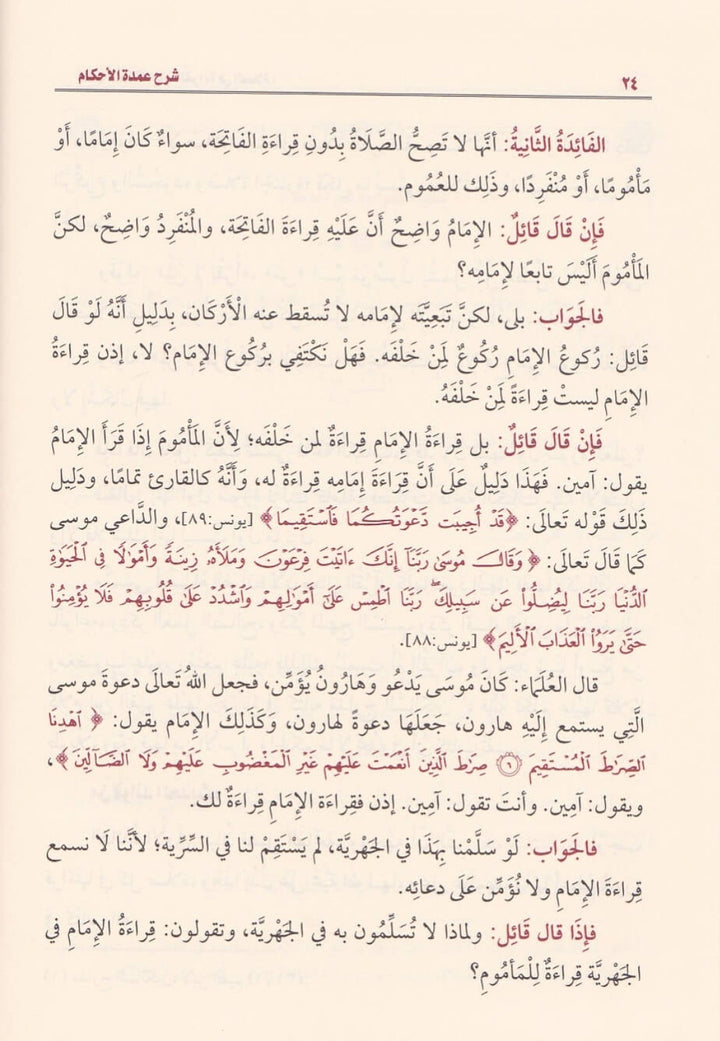 ٢٤ شرح عمدة الأحكام
الفَائِدَةُ الثَّانِيةُ: أنَّها لا تَصِحُّ الصَّلَاةُ بِدُونِ قِراءَةِ الفَاتِحَةِ، سواءٌ كَانَ إِمَامًا، أَوْ
مَأْمُومًا، أَوْ مُنْفَرِدًا، وذَلِك للعُمُوم.
فَإِنْ قَالَ قَائِلٌ: الإِمَامُ وَاضِحٌ أَنَّ عَلَيْهِ قِراءَةَ الفَاتِحَة، والمُنْفَرِد وَاضِحٌ، لكنَّ
المَأْمُومَ أَلَيْسَ تابعًا لإِمَامِه؟
فالجَوَاب: بلى، لكنَّ تَبَعِيَّتَه لإِمَامه لا تُسقط عنه الْأَرْكَان، بِدَلِيلِ أَنَّهُ لَوْ قَالَ
قَائِل: رُكوعُ الإِمَامِ رُكُوعٌ لمَنْ خَلْفَه. فَهَلْ نَكْتَفِي برُكُوع الإِمَام؟ لا، إذن قِراءَةُ
الإِمَامِ ليستْ قِراءَةً لمَنْ خَلْفَهُ.
فَإِنْ قَالَ قَائِلٌ: بل قِراءَةُ الإِمَامِ قِراءَةٌ لمن خَلْفَه؛ لِأَنَّ المَأْمُومَ إِذَا قَرَأَ الإِمَامُ
يقول: آمين. فَهَذَا دَلِيلٌ عَلَى أَنَّ قِرَاءَةَ إِمَامِه قِراءَةٌ له، وَأَنَّهُ كالقارئ تمامًا، ودَلِيل
ذَلِكَ قَوْله تَعَالَى: ﴿قَدْ أُجِيبَت دَّعْوَتُكُمَا فَٱسْتَقِيمَا﴾ [يونس:٨٩]، والدَّاعي موسى
كَمَا قَالَ تَعَالَى: ﴿وَقَالَ مُوسَىٰ رَبَّنَآ إِنَّكَ ءَاتَيْتَ فِرْعَوْنَ وَمَلَأَهُۥ زِينَةً وَأَمْوَٰلًا فِي ٱلْحَيَوٰةِ
ٱلدُّنْيَا رَبَّنَا لِيُضِلُّوا۟ عَن سَبِيلِكَ ۖ رَبَّنَا ٱطْمِسْ عَلَىٰٓ أَمْوَٰلِهِمْ وَٱشْدُدْ عَلَىٰ قُلُوبِهِمْ فَلَا يُؤْمِنُوا۟
حَتَّىٰ يَرَوُا۟ ٱلْعَذَابَ ٱلْأَلِيمَ﴾ [يونس:٨٨].
قال العُلَمَاء: كَانَ مُوسَى يَدْعُو وَهَارُونُ يُؤَمِّن، فجعل اللهُ تَعَالَى دعوةَ موسى
الَّتِي يستمع إِلَيْهِ هارون، جَعَلَهَا دعوةً لهارون، وَكَذَلِكَ الإمَام يقول: ﴿ٱهْدِنَا
ٱلصِّرَٰطَ ٱلْمُسْتَقِيمَ ۝٦ صِرَٰطَ ٱلَّذِينَ أَنْعَمْتَ عَلَيْهِمْ غَيْرِ ٱلْمَغْضُوبِ عَلَيْهِمْ وَلَا ٱلضَّآلِّينَ﴾،
ويقول: آمين. وأنتَ تقول: آمين. إذن فقِراءَة الإِمَام قِراءَةٌ لك.
فالجَوَاب: لَوْ سَلَّمْنا بِهَذَا في الجَهْرِيَّة، لم يَسْتَقِمْ لنا في السِّرِّية؛ لأَنَّنا لا نسمع
قِراءَةَ الإِمَامِ ولا نُؤَمِّن عَلَى دعائِه.
فإِذَا قال قَائِل: ولماذا لا تُسَلِّمُون به في الجَهْرِيَّة، وتقولون: قِراءَةُ الإِمَام في
الجَهْرِيَّة قِراءَةٌ لِلْمَأمُوم؟